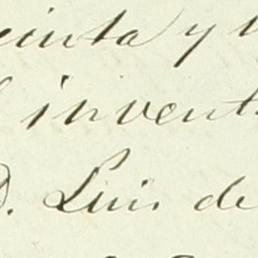 cinta y
invent
D. Luis de